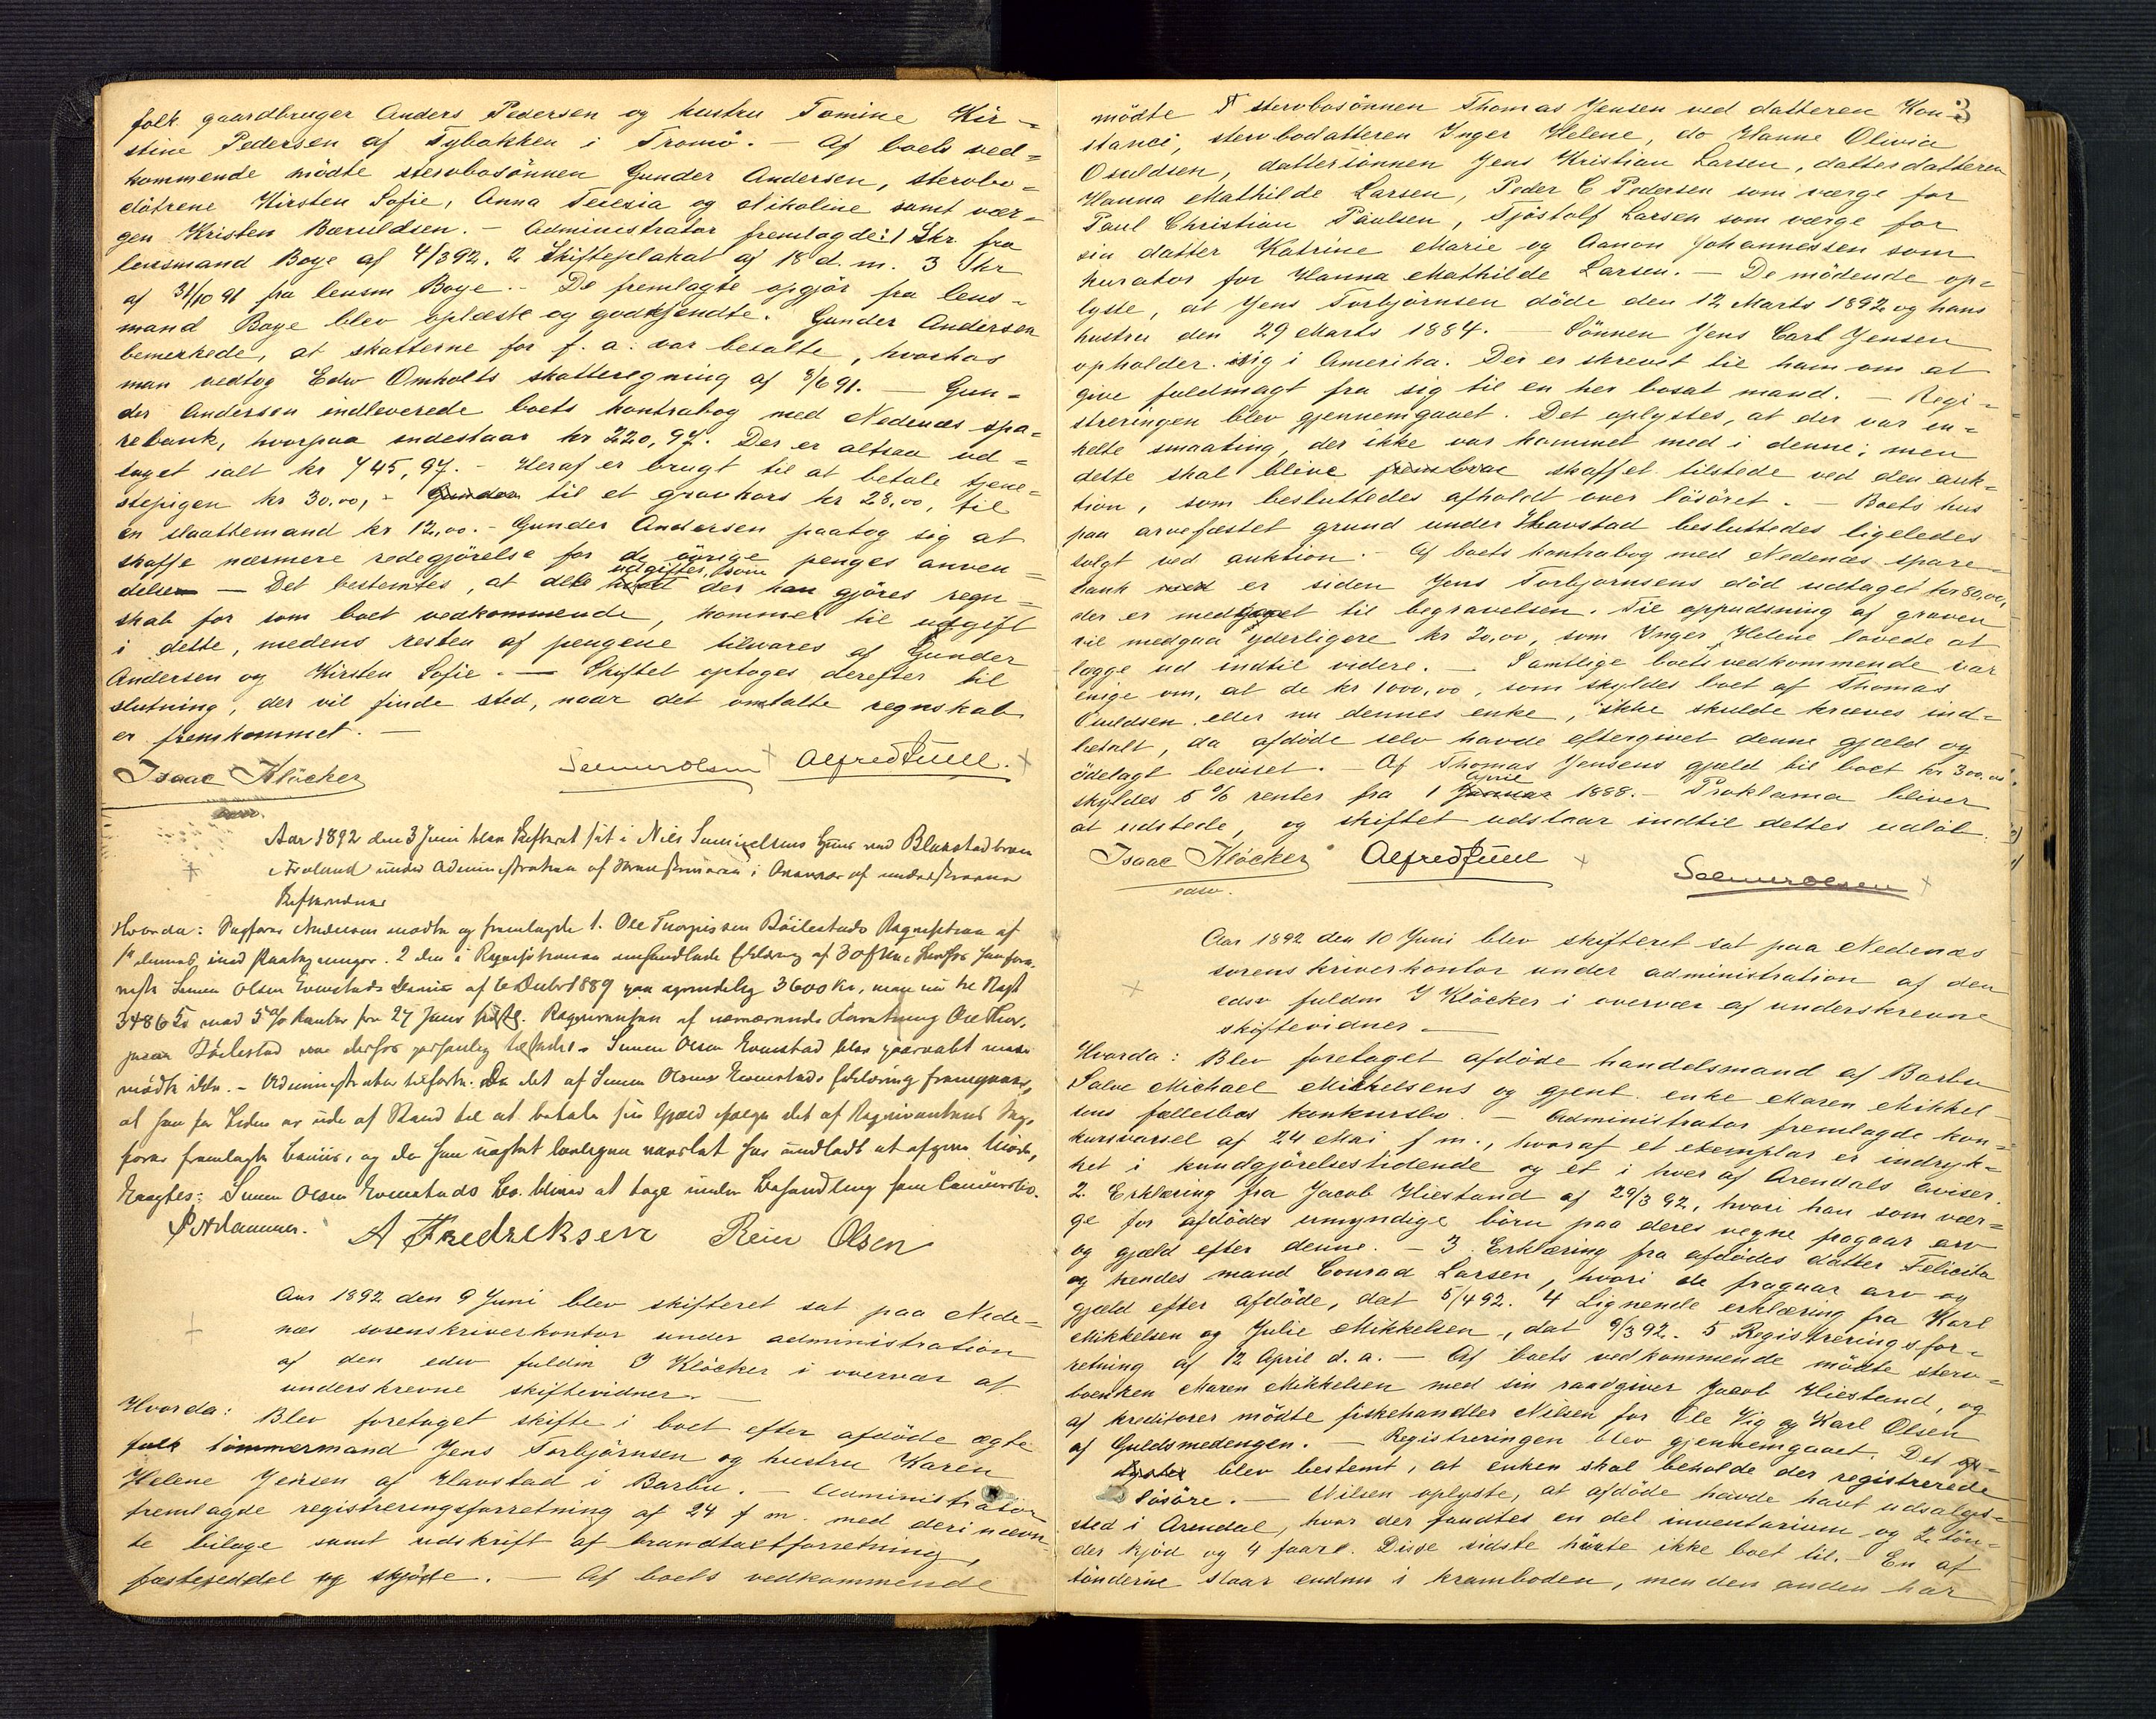 folk gaardbruger Anders Pedersen og hustru Tomine Kir-
stine Pedersen af Tybakken i Tromö. - Af boets ved-
kommende mödte stervbosönnen Gunder Andersen, stervbo-
döttrene Kirsten Sofie, Anna Teresia og Nikoline samt vær-
gen Kristen Baruldsen. - Administrator fremlagde: 1 Skr fra
lensmand Boye af 4/3 92. 2 Skifteplakat af 18 d. m. 3 Skr
af 31/10 91 fra lensm Boye. - De fremlagte opgjör fra lens-
mand Boye blev oplæste og godkjendte. Gunder Andersen
bemerkede, at skatterne for f. a. var betalte, hvorhos
man vedtog Edw Omholts skatteregning af 8/6 91. - Gun-
der Andersen indleverede boets kontrabog med Nedenæs spa-
rebank, hvorpaa indestaar kr 220,97. Der er altsaa ud-
taget ialt kr 745,97. - Heraf er brugt til at betale tjene-
stepigen kr 30.00, - Gunder til et gravkors kr 28,00, til
en slaattemand kr 12,00. - Gunder Andersen paatog sig at
skaffe nærmere redegjörelse for de övrige penges anven-
delse - Det bestemtes, at de udgifter, som der kan gjöres regn-
skab for som boet vedkommende, kommer til udgift
i dette, medens resten af pengene tilsvares af Gunder
Andersen og Kirsten Sofie. - Skiftet optoges derefter til
slutning, der vil finde sted, naar det omtalte regnskab
er fremkommet. -
Isaac Klöcker Selmer Olsen Alfred Juell.
Aar 1892 den 3 Juni blev Skifteret sat i Nils Samuelsens Huus ved Blakstad bro
Froland under Administration af Sorenskriveren i Overvær af underskrevne
Skiftevidner
Hvorda: Sagförer Andersen mödte og fremlagde 1. Ole Thorjussen Böilestads Reqvisition af
3486 med 5 % Renter fra 27 Juni
mödte ikke. - Administrator tilförte: Da det af Simen Olsen Evenstads Erklæring fremgaar,
at han for Tiden er ude af Stand til at betale sin Gjæld ifölge det af Reqvirentens Sag-
förer fremlagte Beviis, og da han uagtet lovligen varslet har undladt at afgive Möde,
Eragtes: Simen Olsen Evenstads Bo bliver at tage under Behandling som Concursbo.
A Fredreksen Reier Olsen
Aar 1892 den 9 Juni blev skifteret sat paa Nede-
næs sorenskriverkontor under administration
af den edsv fuldm I Klöcker i overvær af
underskrevne skiftevidner. -
Hvorda: Blev foretaget skifte i boet efter afdöde ægte-
folk tömmermand Jens Torbjörnsen og hustru Karen
Helene Jensen af Havstad i Barbu. - Administrator
fremlagde registreringsforretning af 24 f m. med deri nævn-
te bilage samt udskrift af brandtaxtforretning,
fæsteseddel og skjöde. - Af boets vedkommende
3
mödte stervbosönnen Thomas Jensen ved datteren Kon-
stanci, stervbodatteren Inger Helene, do Hanne Olivia
Osuldsen, dattersönnen Jens Kristian Larsen, datterdatteren
Hanna Mathilde Larsen, Peder C Pedersen som værge for
Paul Christian Paulsen, Tjöstolf Larsen som værge for
sin datter Katrine Marie og Aanon Johannessen som
kurator for Hanna Mathilde Larsen. - De mödende op-
lyste, at Jens Torbjörnsen döde den 12 Marts 1892 og hans
hustru den 29 Marts 1884. - Sönnen Jens Carl Jensen
opholder sig i Amerika. Der er skrevet til ham om at
give fuldmagt fra sig til en her bosat mand. - Regi-
streringen blev gjennemgaaet. Det oplystes, at der var en-
kelte smaating, der ikke var kommet med i denne; men
dette skal blive skaffet tilstede ved den auk-
tion, som besluttedes afholdt over lösöret. - Boets hus
paa arvefæstet grund under Havstad besluttedes ligeledes
solgt ved auktion. - Af boets kontrabog med Nedenæs spare-
bank med er siden Jens Torbjörnsens död udtaget kr 80,00,
der er medgaaet til begravelsen. Til oppudsning af graven
vil medgaa yderligere kr 20,00, som Inger Helene lovede at
lægge ud indtil videre. - Samtlige boets vedkommende var
enige om, at de kr 1000,00, som skyldes boet af Thomas
Osuldsen eller nu dennes enke, ikke skulde kræves ind-
betalt, da afdöde selv havde eftergivet denne gjæld og
ödelagt beviset. - Af Thomas Jensens gjæld til boet kr 300,00
skyldes 5 % renter fra 1 Januar april 1888. - Proklama bliver
at udstede, og skiftet udstaar indtil dettes udlöb.
Isaac Klöcker Alfred Juell Selmer Olsen
edsv.
Aar 1892 den 10 Juni blev skifteret sat paa Nedenæs
sorenskriverkontor under administration af den
edsv fuldm I Klöcker i overvær af underskrevne
skiftevidner -
Hvorda: Blev foretaget afdöde handelsmand af Barbu
Salve Michael Mikkelsens og gjenl. enke Maren Mikkel-
sens fællesbos konkursbo. - Administrator fremlagde kon-
kursvarsel af 24 Mai f m., hvoraf et exemplar er indryk-
ket i kundgjörelsestidende og et i hver af Arendals aviser.
2. Erklæring fra Jacob Hiestand af 29/3 92, hvori han som vær-
ge for afdödes umyndige börn paa deres vegne fragaar arv
og gjæld efter denne. - 3 Erklæring fra afdödes datter Felicita
og hendes mand Conrad Larsen, hvori de fragaar arv og
gjæld efter afdöde, dat 5/4 92. 4 Lignende erklæring fra Karl
Mikkelsen og Julie Mikkelsen, dat 9/3 92. 5 Registreringsfor-
retning af 12 April d. a. - Af boets vedkommende mödte sterv-
boenken Maren Mikkelsen med sin raadgiver Jacob Hiestand, og
af kreditorer mödte fiskehandler Nilsen for Ole Vig og Karl Olsen
af Guldsmedengen. - Registreringen blev gjennemgaaet. Det op-
lystes blev bestemt, at enken skal beholde der registrerede
lösöre. - Nilsen oplyste, at afdöde havde havt udsalgs-
sted i Arendal, hvor der fandtes en del inventarium og 2 tön-
der kjöd og 4 faarl. Disse sidste hörte ikke boet til. - En af
tönderne staar endnu i kramboden, men den anden har